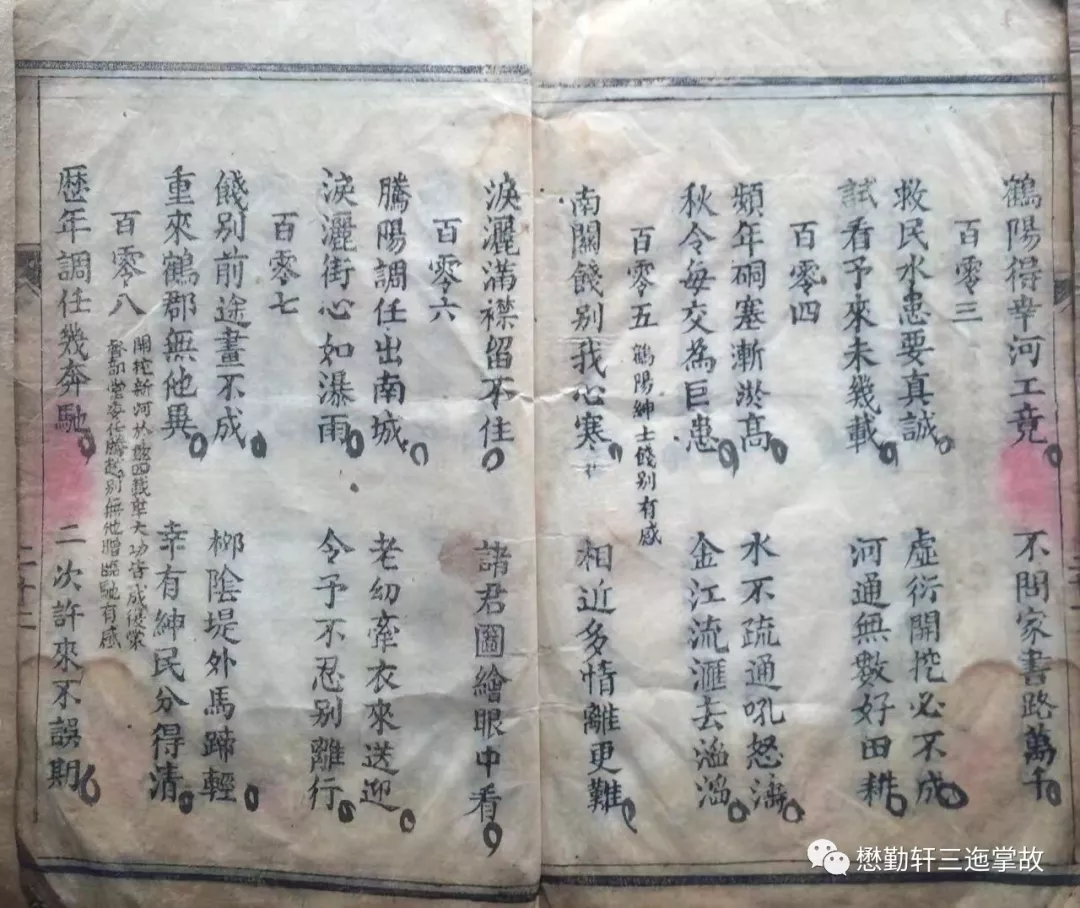 鶴陽得幸河工竟 不問家書路萬千
百零三
救民水患要真誠 虛衍開挖必不成
試看予來未幾載 河通無數好田耕
百零四
頻年硐塞漸淤高 水不疏通吼怒濤
秋令每交為巨患 金江流滙去滔滔
百零五 鶴陽紳士餞別有感
南關餞別我心寒 相近多情離更難
淚灑滿襟留不住 諸君圖繪眼中看
百零六
騰陽調任出南城 老幼牽衣來送迎
淚灑街心如瀑雨 令予不忍别離行
百零七
餞別前途畫不成 柳陰堤外馬蹄輕
重來鶴郡無他異 幸有紳民分得清
百零八 開挖新河於茲四載幸大功告成復蒙
督部堂委任騰越別無他贈臨馳有感
歷年調任幾奔馳 二次許來不誤期
懋勤轩三迤掌故